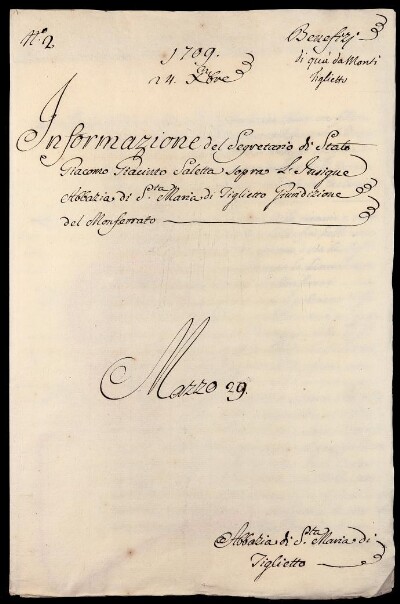 N.º 2
Benefizj
di quà da Monti
Tiglietto
1709.
24. Xbre
Informazione del Segretario di Stato
Giacomo Giacinto Saletta sopra L'Insigne
Abbazia di S.ta Maria di Tiglietto Giurisdizione
del Monferrato
Mazzo 29.
Abbazia di S.ta Maria di
Tiglietto